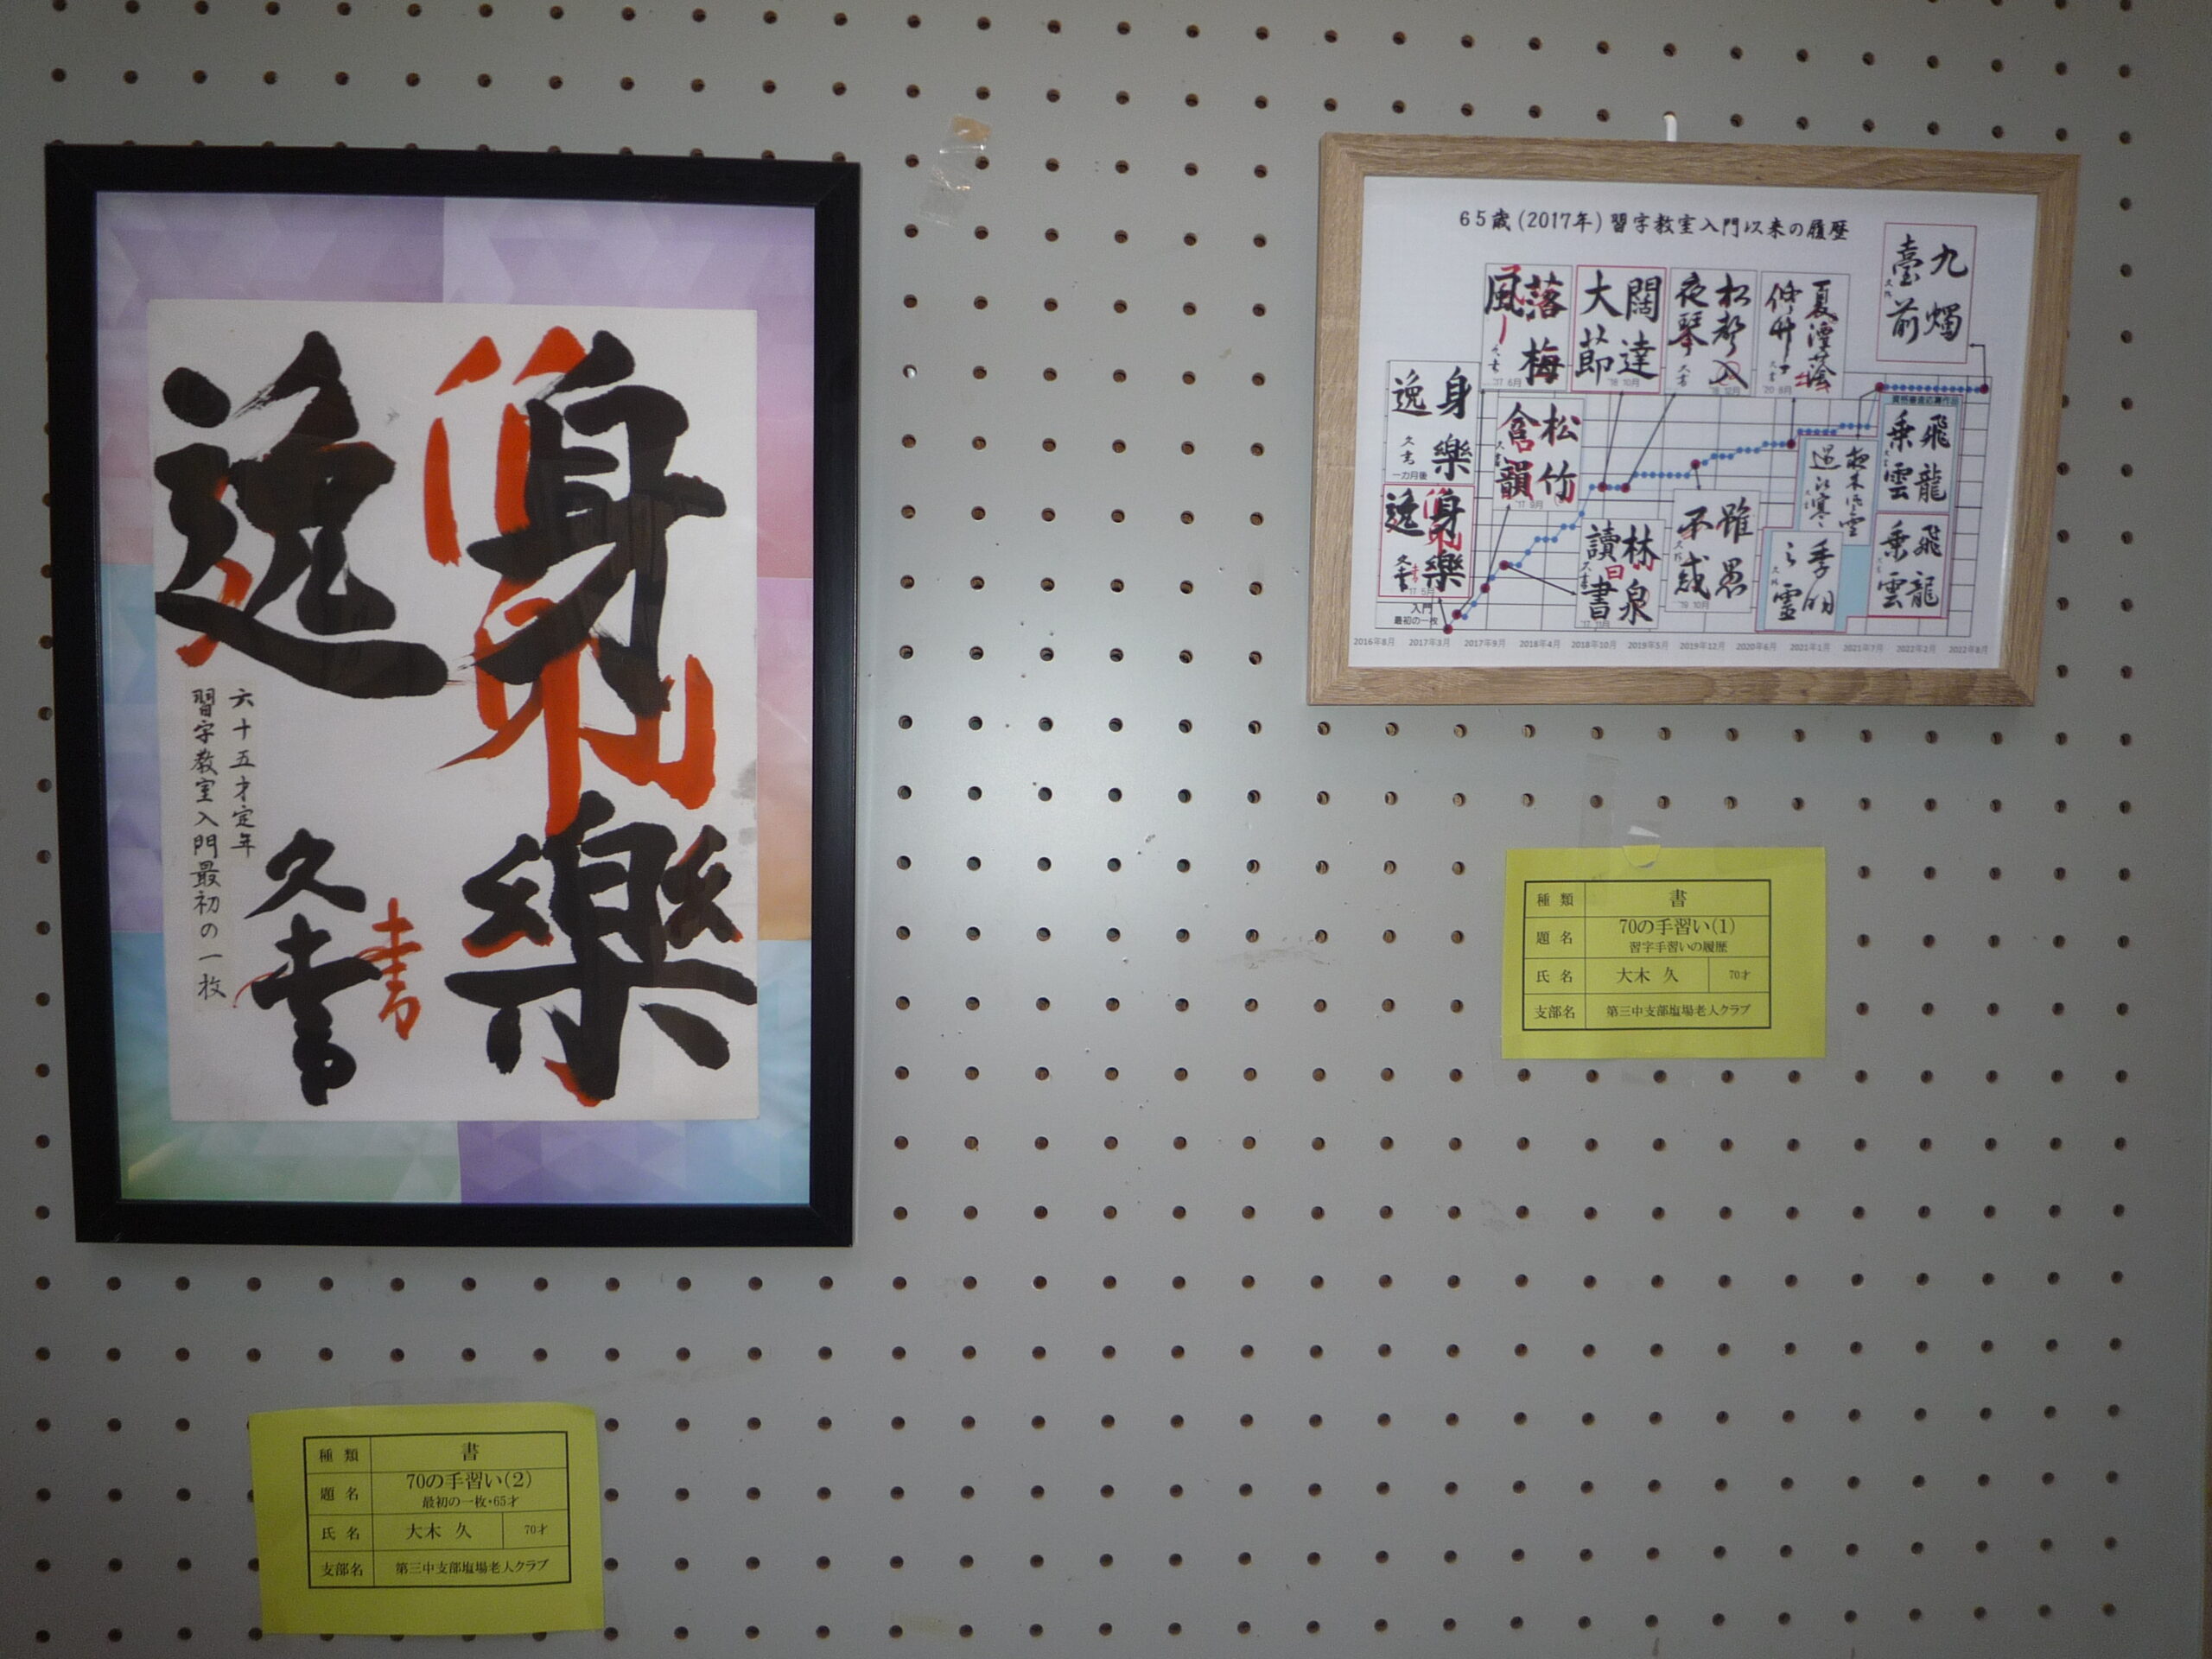 身樂
逸
久書
書
六十五才定年
習字教室入門最初の一枚
種類 書
題名 70の手習い(2)
最初の一枚・65才
氏名 大木 久 70才
支部名 第三中支部塩場老人クラブ
65歳(2017年)習字教室入門以来の履歴
九燭
臺前
落梅
風
久書
'17 6月
闊達
大節
'18 10月
松声入
夜琴
久書
夏
身樂
逸
久書
一カ月後
松竹
含韻
'17 9月
身樂
逸
久書
書
'17 5月
入門
最初の一枚
林泉
讀書
日
雖愚
不惑
'19 10月
飛龍
乗雲
飛龍
乗雲
2016年8月 2017年3月 2017年9月 2018年4月 2018年10月 2019年5月 2019年12月 2020年6月 2021年1月 2021年7月 2022年2月 2022年8月
種類 書
題名 70の手習い(1)
習字手習いの履歴
氏名 大木 久 70才
支部名 第三中支部塩場老人クラブ